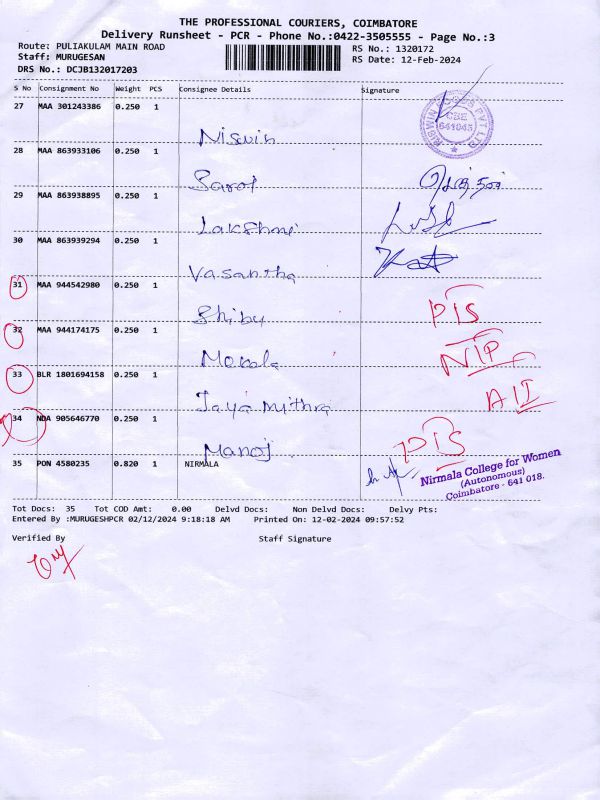 THE PROFESSIONAL COURIERS, COIMBATORE
Delivery Runsheet - PCR - Phone No.:0422-3505555 - Page No.:3
Route: PULIAKULAM MAIN ROAD
RS No.: 1320172
Staff: MURUGESAN
RS Date: 12-Feb-2024
DRS No.: DCJB132017203
S No Consignment No Weight PCS Consignee Details Signature
27 MAA 301243386 0.250 1
CBE
641045
Niswin
28 MAA 863933106 0.250 1
Saroj
29 MAA 863938895 0.250 1
Lakshmi
30 MAA 863939294 0.250 1
Vasantha
31 MAA 944542980 0.250 1
Shibu PIS
32 MAA 944174175 0.250 1
Mekala NIP
33 BLR 1801694158 0.250 1
Jaya Mithra AII
34 NDA 905646770 0.250 1
Manoj PIS
35 PON 4580235 0.820 1 NIRMALA
Nirmala College for Women
(Autonomous)
Coimbatore - 641 018.
Tot Docs: 35 Tot COD Amt: 0.00 Delvd Docs: Non Delvd Docs: Delvy Pts:
Entered By :MURUGESHPCR 02/12/2024 9:18:18 AM Printed On: 12-02-2024 09:57:52
Verified By Staff Signature